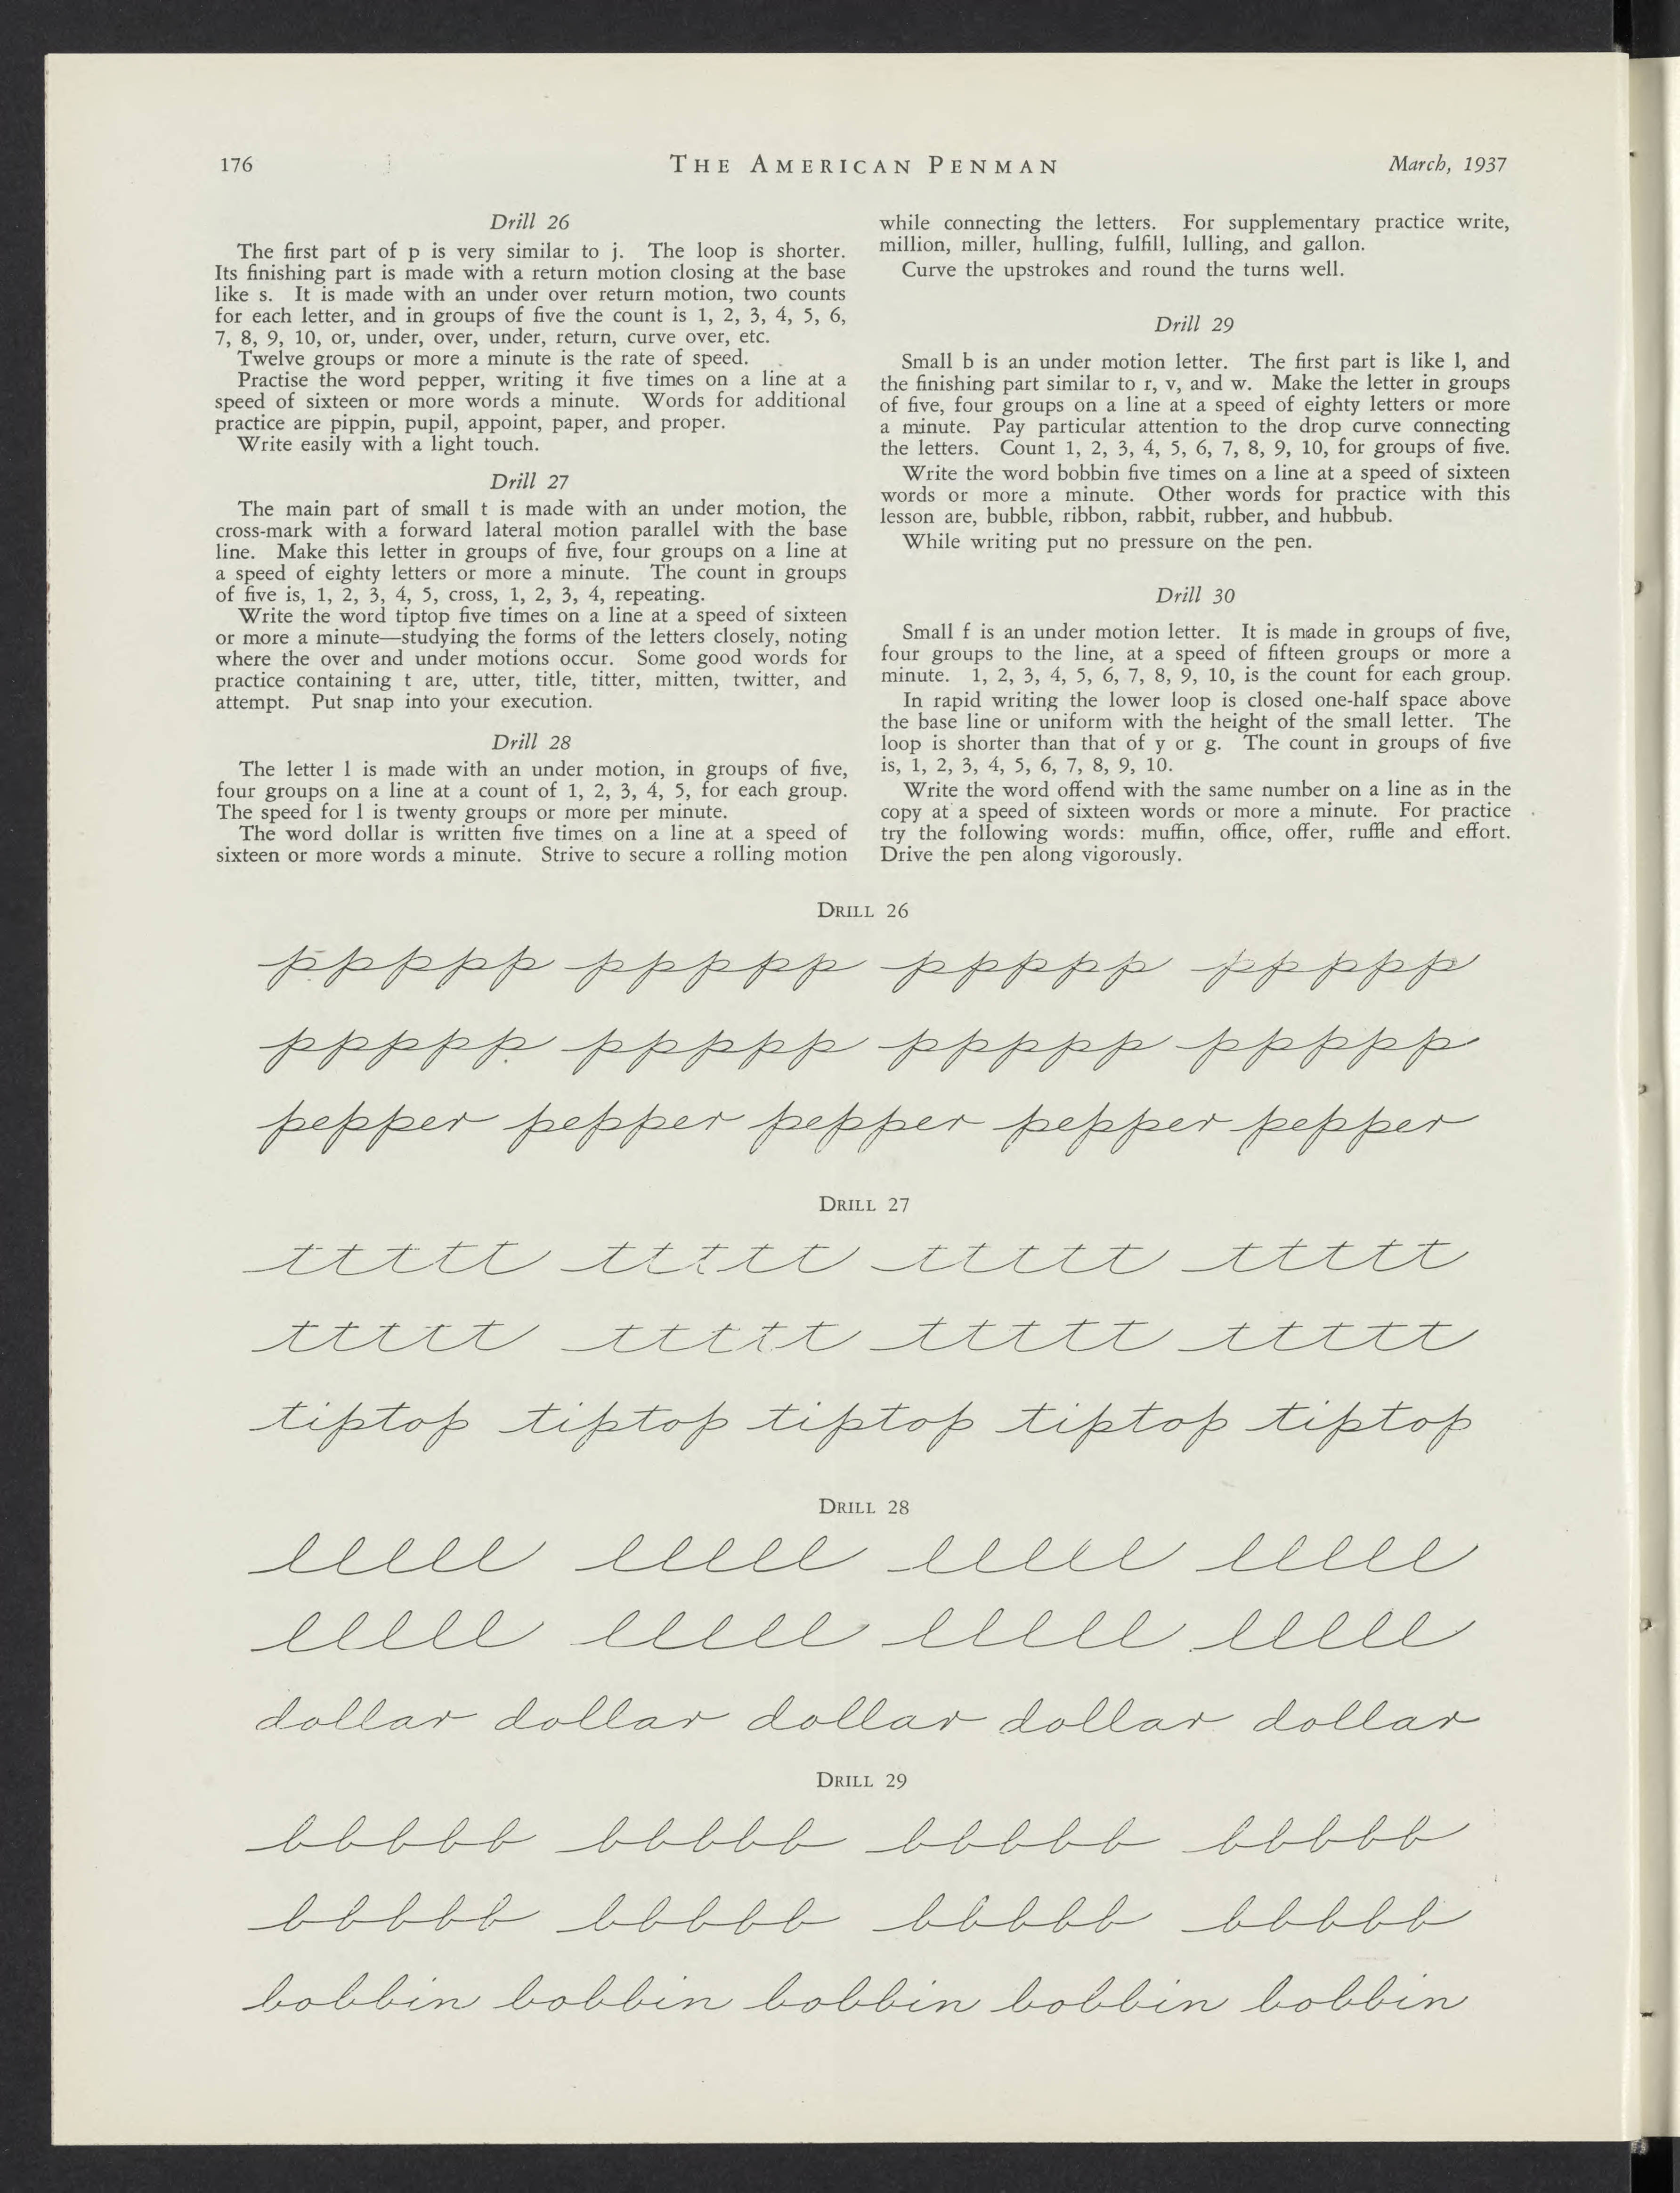 176
THE AMERICAN PENMAN
March, 1937
Drill 26
The first part of p is very similar to j. The loop is shorter.
Its finishing part is made with a return motion closing at the base
like s. It is made with an under over return motion, two counts
for each letter, and in groups of five the count is 1, 2, 3, 4, 5, 6,
7, 8, 9, 10, or, under, over, under, return, curve over, etc.
Twelve groups or more a minute is the rate of speed.
Practise the word pepper, writing it five times on a line at a
speed of sixteen or more words a minute. Words for additional
practice are pippin, pupil, appoint, paper, and proper.
Write easily with a light touch.
Drill 27
The main part of small t is made with an under motion, the
cross-mark with a forward lateral motion parallel with the base
line. Make this letter in groups of five, four groups on a line at
a speed of eighty letters or more a minute. The count in groups
of five is, 1, 2, 3, 4, 5, cross, 1, 2, 3, 4, repeating.
Write the word tiptop five times on a line at a speed of sixteen
or more a minute—studying the forms of the letters closely, noting
where the over and under motions occur. Some good words for
practice containing t are, utter, title, titter, mitten, twitter, and
attempt. Put snap into your execution.
Drill 28
The letter l is made with an under motion, in groups of five,
four groups on a line at a count of 1, 2, 3, 4, 5, for each group.
The speed for l is twenty groups or more per minute.
The word dollar is written five times on a line at a speed of
sixteen or more words a minute. Strive to secure a rolling motion
while connecting the letters. For supplementary practice write,
million, miller, hulling, fulfill, lulling, and gallon.
Curve the upstrokes and round the turns well.
Drill 29
Small b is an under motion letter. The first part is like l, and
the finishing part similar to r, v, and w. Make the letter in groups
of five, four groups on a line at a speed of eighty letters or more
a minute. Pay particular attention to the drop curve connecting
the letters. Count 1, 2, 3, 4, 5, 6, 7, 8, 9, 10, for groups of five.
Write the word bobbin five times on a line at a speed of sixteen
words or more a minute. Other words for practice with this
lesson are, bubble, ribbon, rabbit, rubber, and hubbub.
While writing put no pressure on the pen.
Drill 30
Small f is an under motion letter. It is made in groups of five,
four groups to the line, at a speed of fifteen groups or more a
minute. 1, 2, 3, 4, 5, 6, 7, 8, 9, 10, is the count for each group.
In rapid writing the lower loop is closed one-half space above
the base line or uniform with the height of the small letter. The
loop is shorter than that of y or g. The count in groups of five
is, 1, 2, 3, 4, 5, 6, 7, 8, 9, 10.
Write the word offend with the same number on a line as in the
copy at a speed of sixteen words or more a minute. For practice
try the following words: muffin, office, offer, ruffle and effort.
Drive the pen along vigorously.
DRILL 26
ppppp ppppp ppppp ppppp
ppppp ppppp ppppp ppppp
pepper pepper pepper pepper pepper
DRILL 27
ttttt ttttt ttttt ttttt
ttttt ttttt ttttt ttttt
tiptop tiptop tiptop tiptop tiptop
DRILL 28
lllll lllll lllll lllll
lllll lllll lllll lllll
dollar dollar dollar dollar dollar
DRILL 29
bbbbb bbbbb bbbbb bbbbb
bbbbb bbbbb bbbbb bbbbb
bobbin bobbin bobbin bobbin bobbin